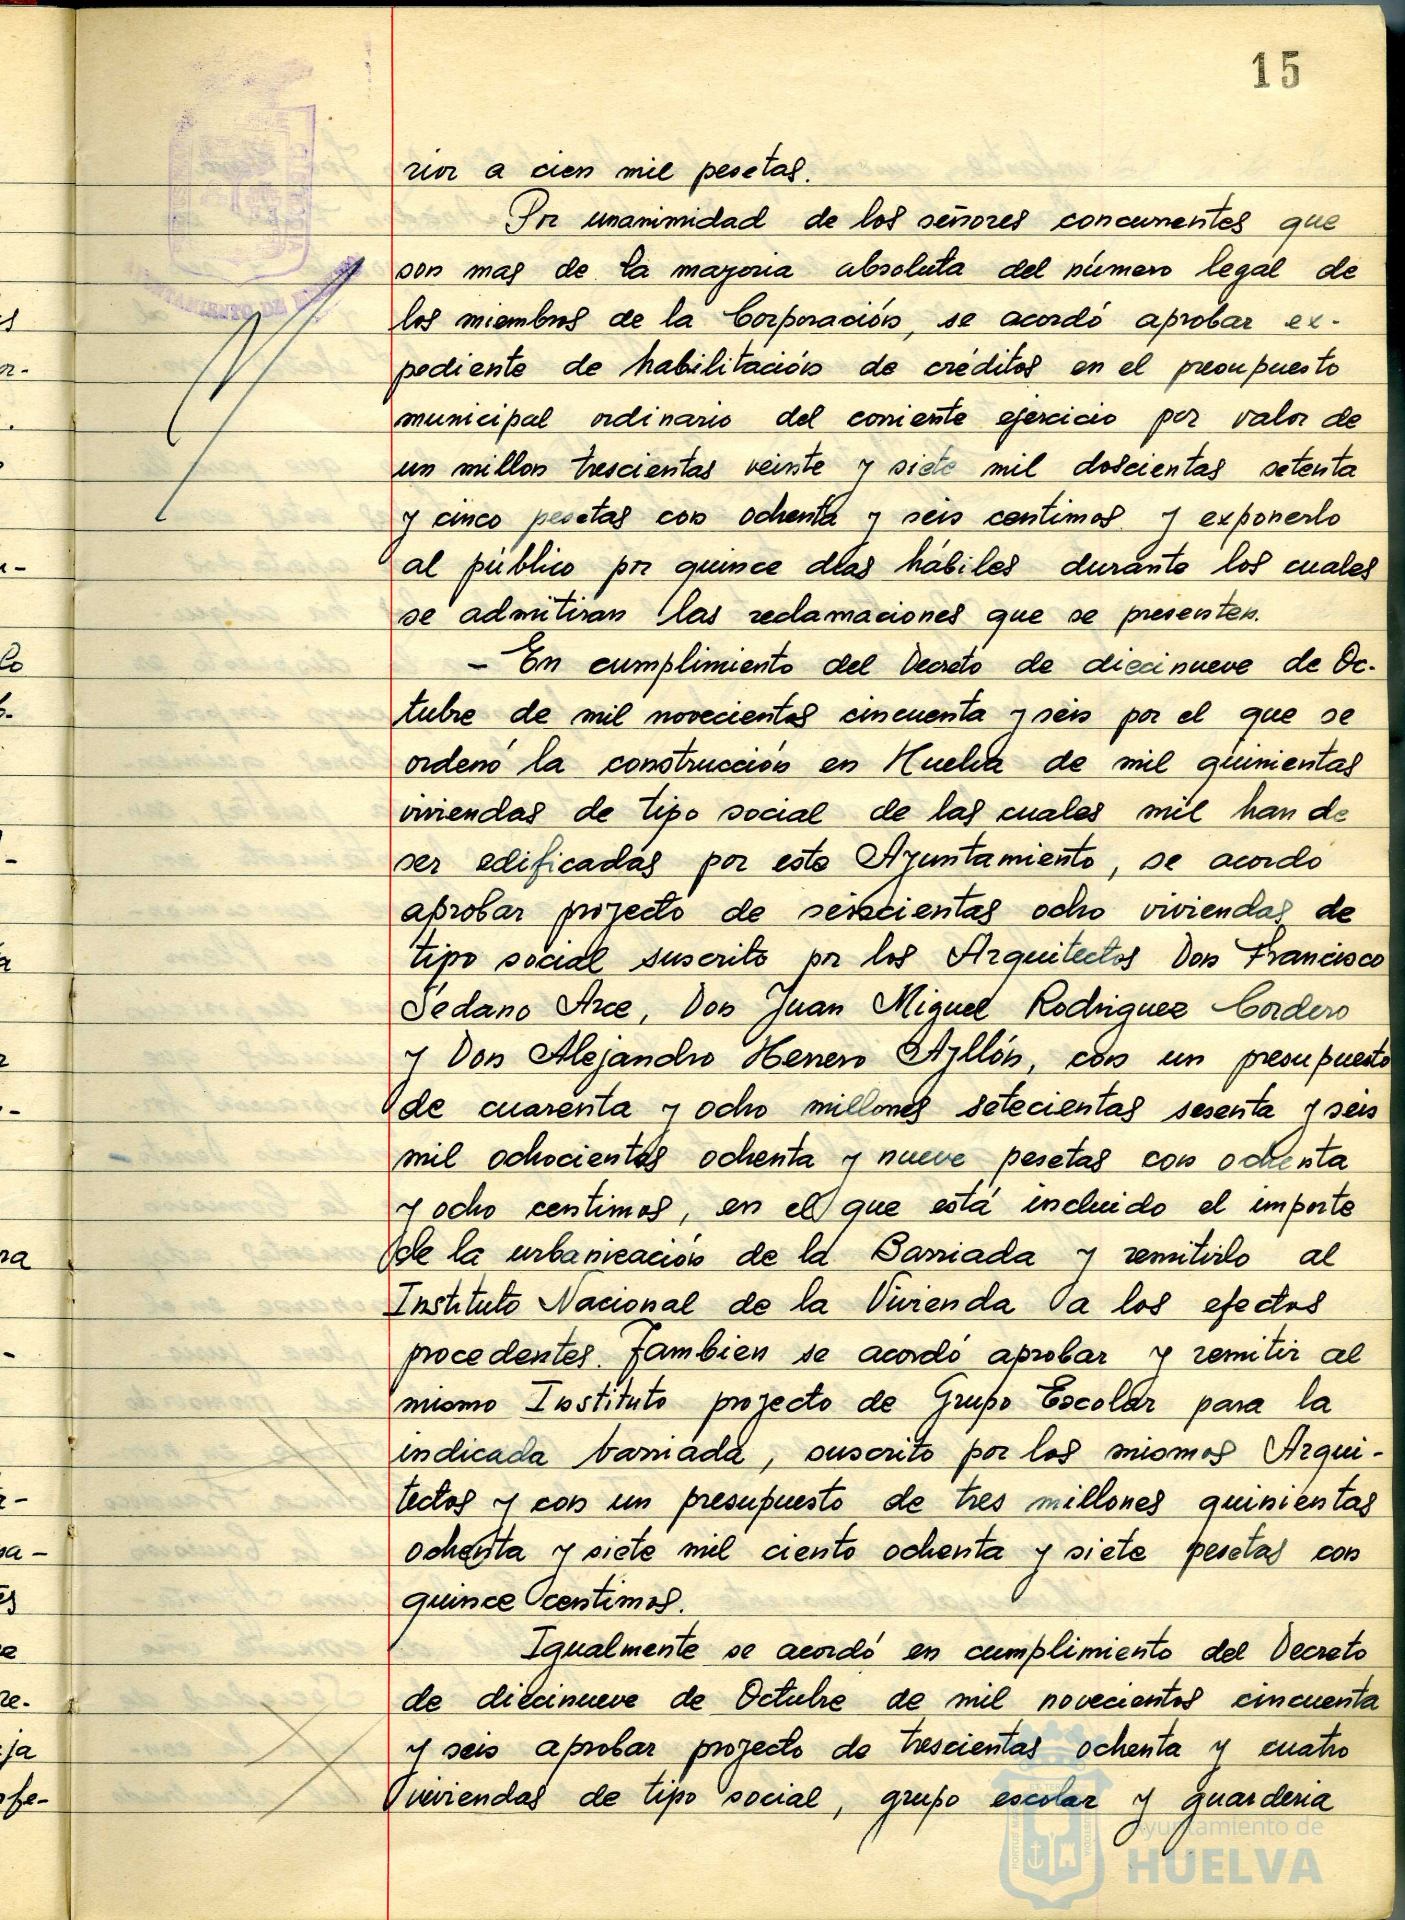 15
rior a cien mil pesetas.
Por unanimidad de los señores concurrentes que
son mas de la mayoria absoluta del número legal de
los miembros de la Corporación, se acordó aprobar ex-
pediente de habilitación de créditos en el presupuesto
municipal ordinario del corriente ejercicio por valor de
un millon trescientas veinte y siete mil doscientas setenta
y cinco pesetas con ochenta y seis centimos y exponerlo
al público por quince dias hábiles durante los cuales
se admitiran las reclamaciones que se presenten.
- En cumplimiento del Decreto de diecinueve de Oc-
tubre de mil novecientos cincuenta y seis por el que se
ordenó la construcción en Huelva de mil quinientas
viviendas de tipo social de las cuales mil han de
ser edificadas por este Ayuntamiento, se acordo
aprobar proyecto de seiscientas ocho viviendas de
tipo social suscrito por los Arquitectos Don Francisco
Sedano Arce, Don Juan Miguel Rodriguez Cordero
y Don Alejandro Herrero Ayllón, con un presupuesto
de cuarenta y ocho millones setecientas sesenta y seis
mil ochocientas ochenta y nueve pesetas con ochenta
y ocho centimos, en el que está incluido el importe
de la urbanización de la Barriada y remitirlo al
Instituto Nacional de la Vivienda a los efectos
procedentes. Tambien se acordó aprobar y remitir al
mismo Instituto proyecto de Grupo Escolar para la
indicada barriada, suscrito por los mismos Arqui-
tectos y con un presupuesto de tres millones quinientas
ochenta y siete mil ciento ochenta y siete pesetas con
quince centimos.
Igualmente se acordó en cumplimiento del Decreto
de diecinueve de Octubre de mil novecientos cincuenta
y seis aprobar proyecto de trescientas ochenta y cuatro
viviendas de tipo social, grupo escolar y guarderia
Ayuntamiento de
HUELVA